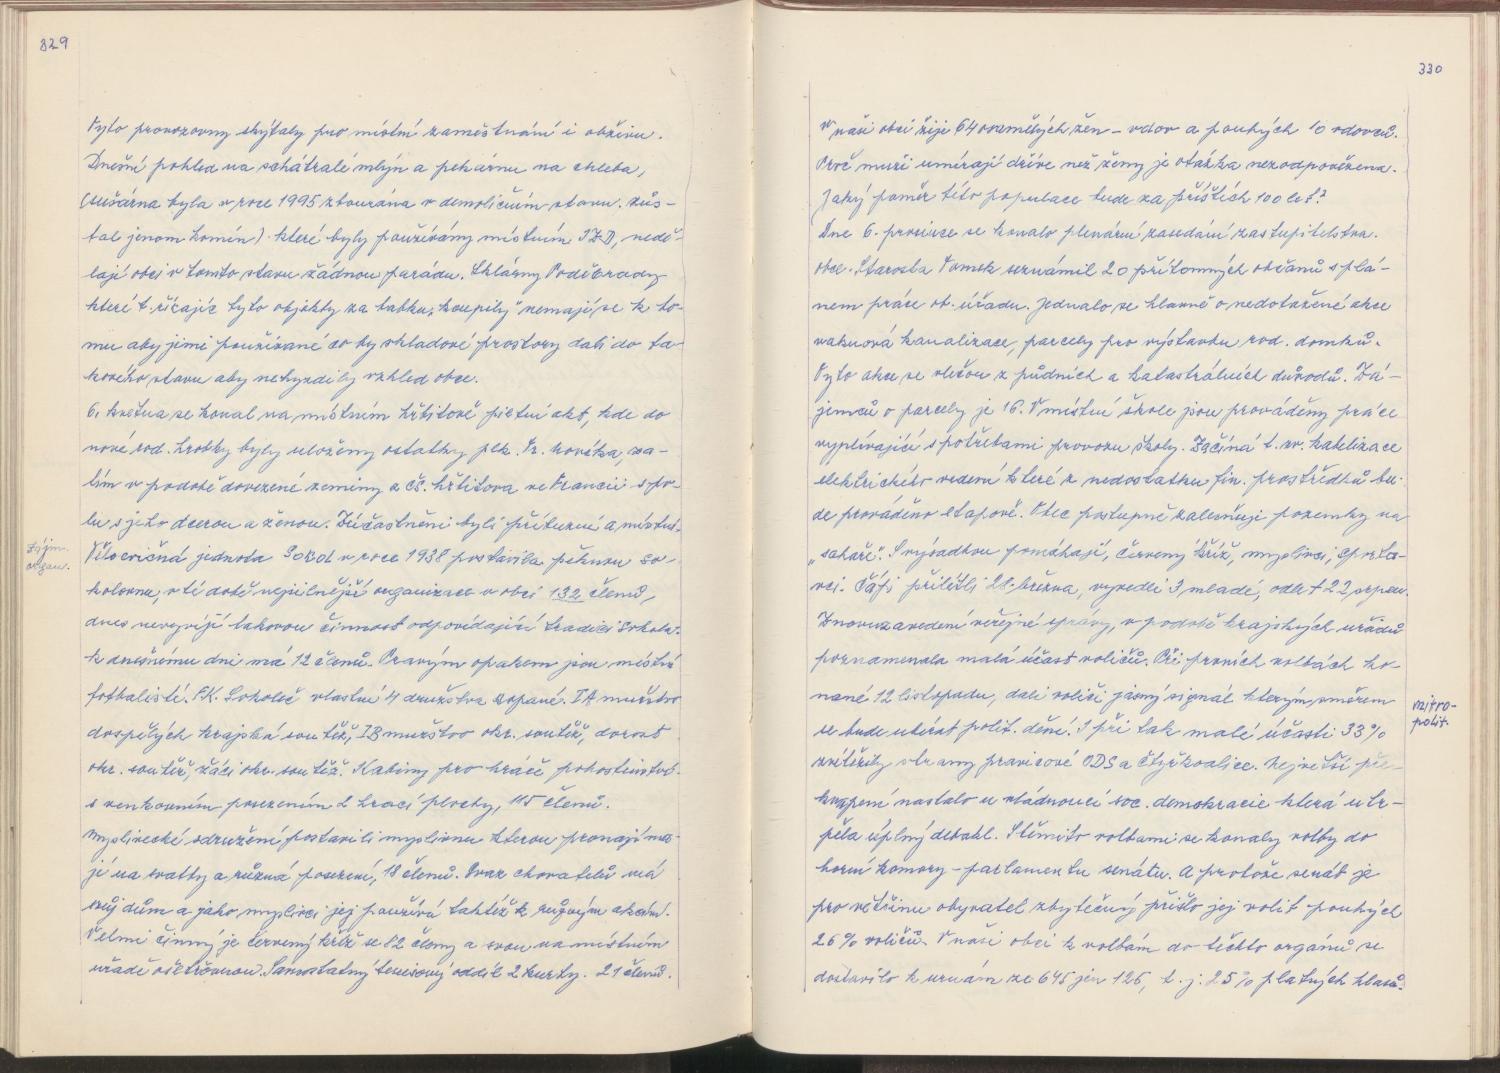 329
Tyto provozovny skýtaly pro místní zaměstnání i obživu.
Dnešní pohled na schátralé mlýn a pekárnu na chleba,
(sušárna byla v roce 1995 zbourána v demoličním stavu. zůs-
tal jenom komín) které byly používány místním JZD, nedě-
lají obci v tomto stavu žádnou parádu. Sklárny Poděbrady
které t. říčajíc tyto objekty za babku „koupily" nemají se k to-
mu aby jimi používané co by skladové prostory dali do ta-
kového stavu aby nehyzdily vzhled obce.
6. května se konal na místním hřbitově pietní akt, kde do
nové rod. hrobky byly uloženy ostatky plk. Fr. Nováka, za-
tím v podobě dovezené zeminy z čs. hřbitova ve Francii spo-
lu s jeho dcerou a ženou. Zúčastněni byli příbuzní a místní.
Zájm.
organ.
Tělocvičná jednota Sokol v roce 1938 postavila pěknou so-
kolovnu, v té době nejsilnější organizace v obci 132 členů,
dnes nevyvíjí takovou činnost odpovídající tradici Sokola.
k dnešnímu dni má 12 členů. Pravým opakem jsou místní
fotbalisté. FK. Sokoleč vlastní 4 družstva kopané. IA mužstvo
dospělých krajská soutěž, IB mužstvo okr. soutěž, dorost
okr. soutěž, žáci okr. soutěž. Kabiny pro hráče pohostinství
s venkovním posezením 2 hrací plochy, 115 členů.
Myslivecké sdružení postavili myslivnu kterou pronajíma-
jí na svatby a různá posezení, 18 členů. Svaz chovatelů má
svůj dům a jako myslivci jej používá taktéž k různým akcím.
Velmi činný je červený kříž se 82 členy a svou na místním
úřadě ošetřovnou. Samostatný tenisový oddíl 2 kurty. 21 členů.
330
V naší obci žije 64 osamělých žen - vdov a pouhých 10 vdovců.
Proč muži umírají dříve než ženy je otázka nezodpovězena.
Jaký poměr této populace bude za příštích 100 let?
Dne 6. prosince se konalo plenární zasedání zastupitelstva.
obce. Starosta Tomek seznámil 20 přítomných občanů s plá-
nem práce ob. úřadu. Jednalo se hlavně o nedotažené akce
vakuová kanalizace, parcely pro výstavbu rod. domků.
Tyto akce se vlečou z půdních a katastrálních důvodů. Zá-
jemců o parcely je 16. V místní škole jsou prováděny práce
vyplívající s potřebami provozu školy. Začíná t. zv. kabelizace
elektrického vedení které z nedostatku fin. prostředků bu-
de prováděno etapově. Obec postupně zalesňuje pozemky na
„sahaře". S výsadbou pomáhají, červený kříž, myslivci, sporto-
vci. Čápi přilétli 28. března, vyvedli 3 mladé, odlet 22 srpen.
Znovuzavedení veřejné správy, v podobě krajských úřadů
poznamenala malá účast voličů. Při prvních volbách ko-
nané 12 listopadu, dali voliči jasný signál kterým směrem
vnitro-
polit.
se bude ubírat polit. dění. I při tak malé účasti 33%
zvítězily strany pravicové ODS a čtyřkoalice. Největší pře-
kvapení nastalo u vládnoucí soc. demokracie která utr-
pěla úplný debakl. S těmito volbami se konaly volby do
horní komory - parlamentu senátu. A protože senát je
pro většinu obyvatel zbytečný přišlo jej volit pouhých
26% voličů. V naší obci k volbám do těchto orgánů se
dostavilo k urnám ze 645 jen 126, t. j. 25% platných hlasů.